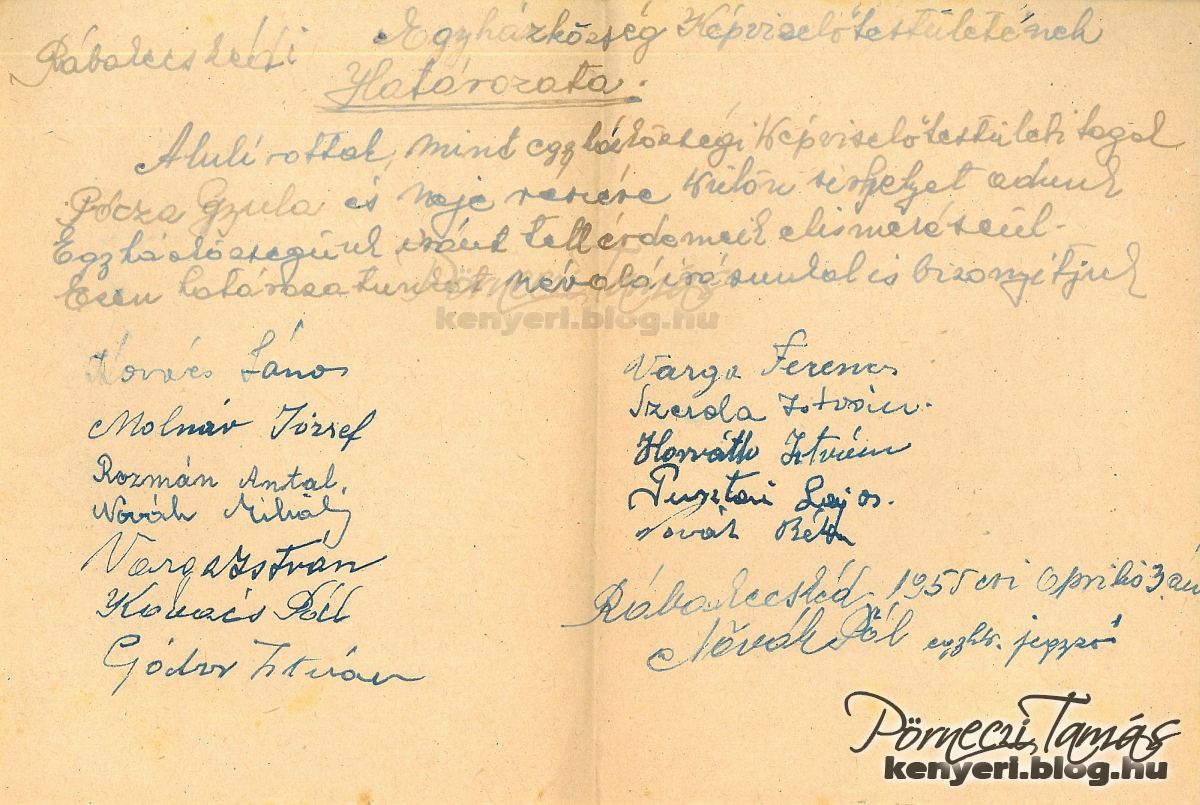 Rábakecskédi Egyházközség Képviselőtestületének
Határozata.
Alulírottak, mint egyházközségi Képviselőtestületi tagok
Pócza Gyula és neje részére külön sírhelyet adunk
Egyházközségünk iránt tett érdemeik elismeréséül.
Ezen határozatunkat névaláírásunkkal is bizonyítjuk
Pörneczi Tamás
kenyeri.blog.hu
Kovács János
Molnár József
Rozmán Antal.
Novák Mihály
Varga István
Kovács Pál
Gódor István
Varga Ferencz
Szerda István.
Horváth István
Pusztai Lajos.
Novák Béla
Rábakecskéd. 1955 évi április 3.án
Novák Pál egyhk. jegyző
Pörneczi Tamás
kenyeri.blog.hu